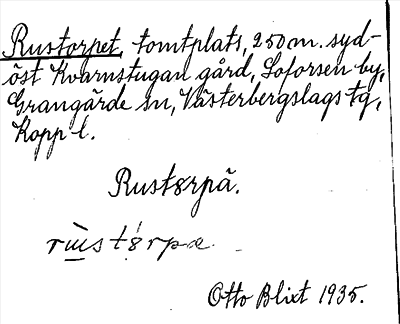 Rustorpet, tomtplats, 250 m. syd-
öst Kvarnstugan gård, Loforsen by,
Grangärde sn, Västerbergslags tg,
Kopp l.
Rust8rpä.
rɯ̀st8́rpæ
Otto Blixt 1935.